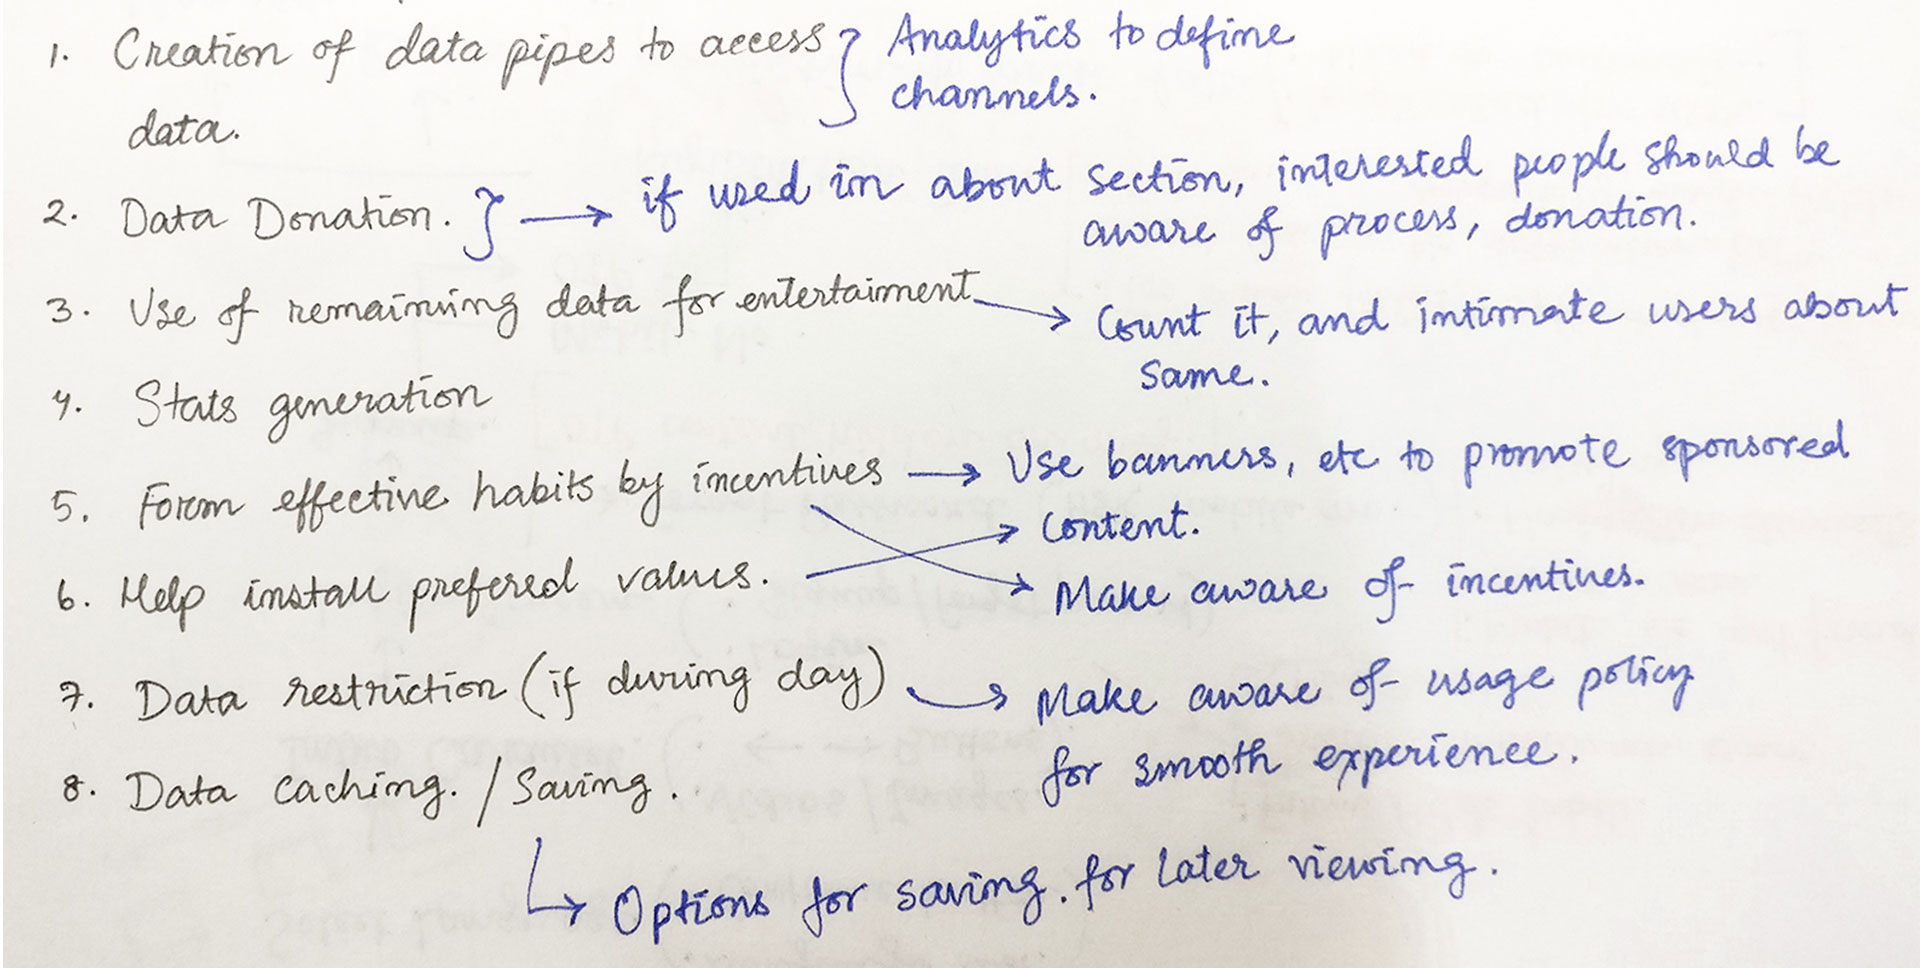 1. Creation of data pipes to access } Analytics to define
data. channels.
2. Data Donation. } → if used in about section, interested people should be
aware of process, donation.
3. Use of remaining data for entertainment → Count it, and intimate users about
same.
4. Stats generation
5. Form effective habits by incentives → Use banners, etc to promote sponsored
content.
6. Help install prefered values. → Make aware of incentives.
7. Data restriction (if during day) → Make aware of usage policy
for smooth experience.
8. Data caching. / Saving.
↳ Options for saving. for later viewing.